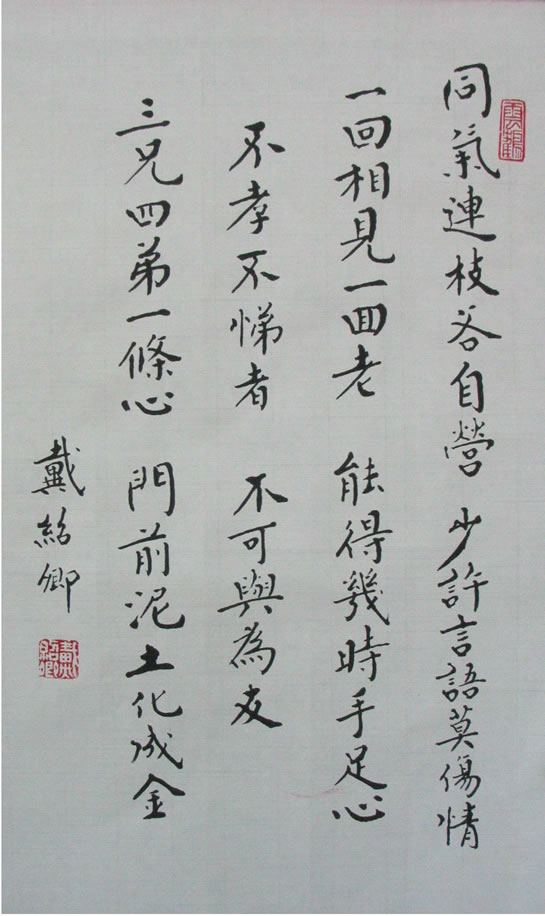 同氣連枝各自營 少許言語莫傷情
一回相見一回老 能得幾時手足心
不孝不悌者 不可與為友
三兄四弟一條心 門前泥土化成金
戴紹卿
戴紹卿